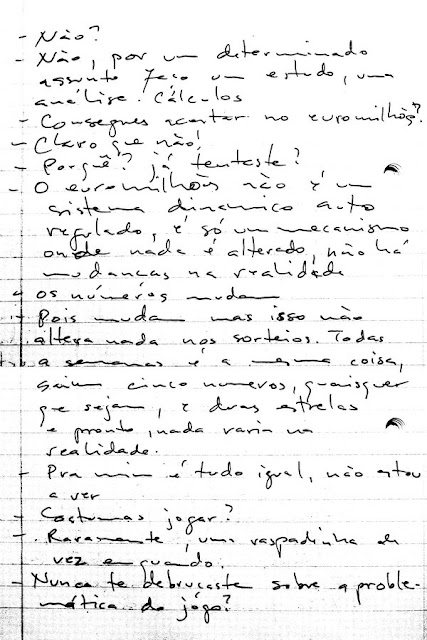 - Não?
- Não, por um determinado
assunto faço um estudo, uma
análise. Cálculos
- Consegues acertar no euromilhões?
- Claro que não!
- Porquê? já tentaste?
- O euromilhões não é um
sistema dinamico auto
regulado, é só um mecanismo
onde nada é alterado, não há
mudanças na realidade
- os números mudam
- Pois mudam mas isso não
altera nada nos sorteios. Todas
a semanas é a mesma coisa,
saiem cinco numeros, quaisquer
que sejam, e duas estrelas
e pronto, nada varia na
realidade.
- Pra mim é tudo igual, não estou
a ver
- Costumas jogar?
- Raramente, uma raspadinha de
vez enquando.
- Nunca te debruçaste sobre a proble-
mática do jôgo?